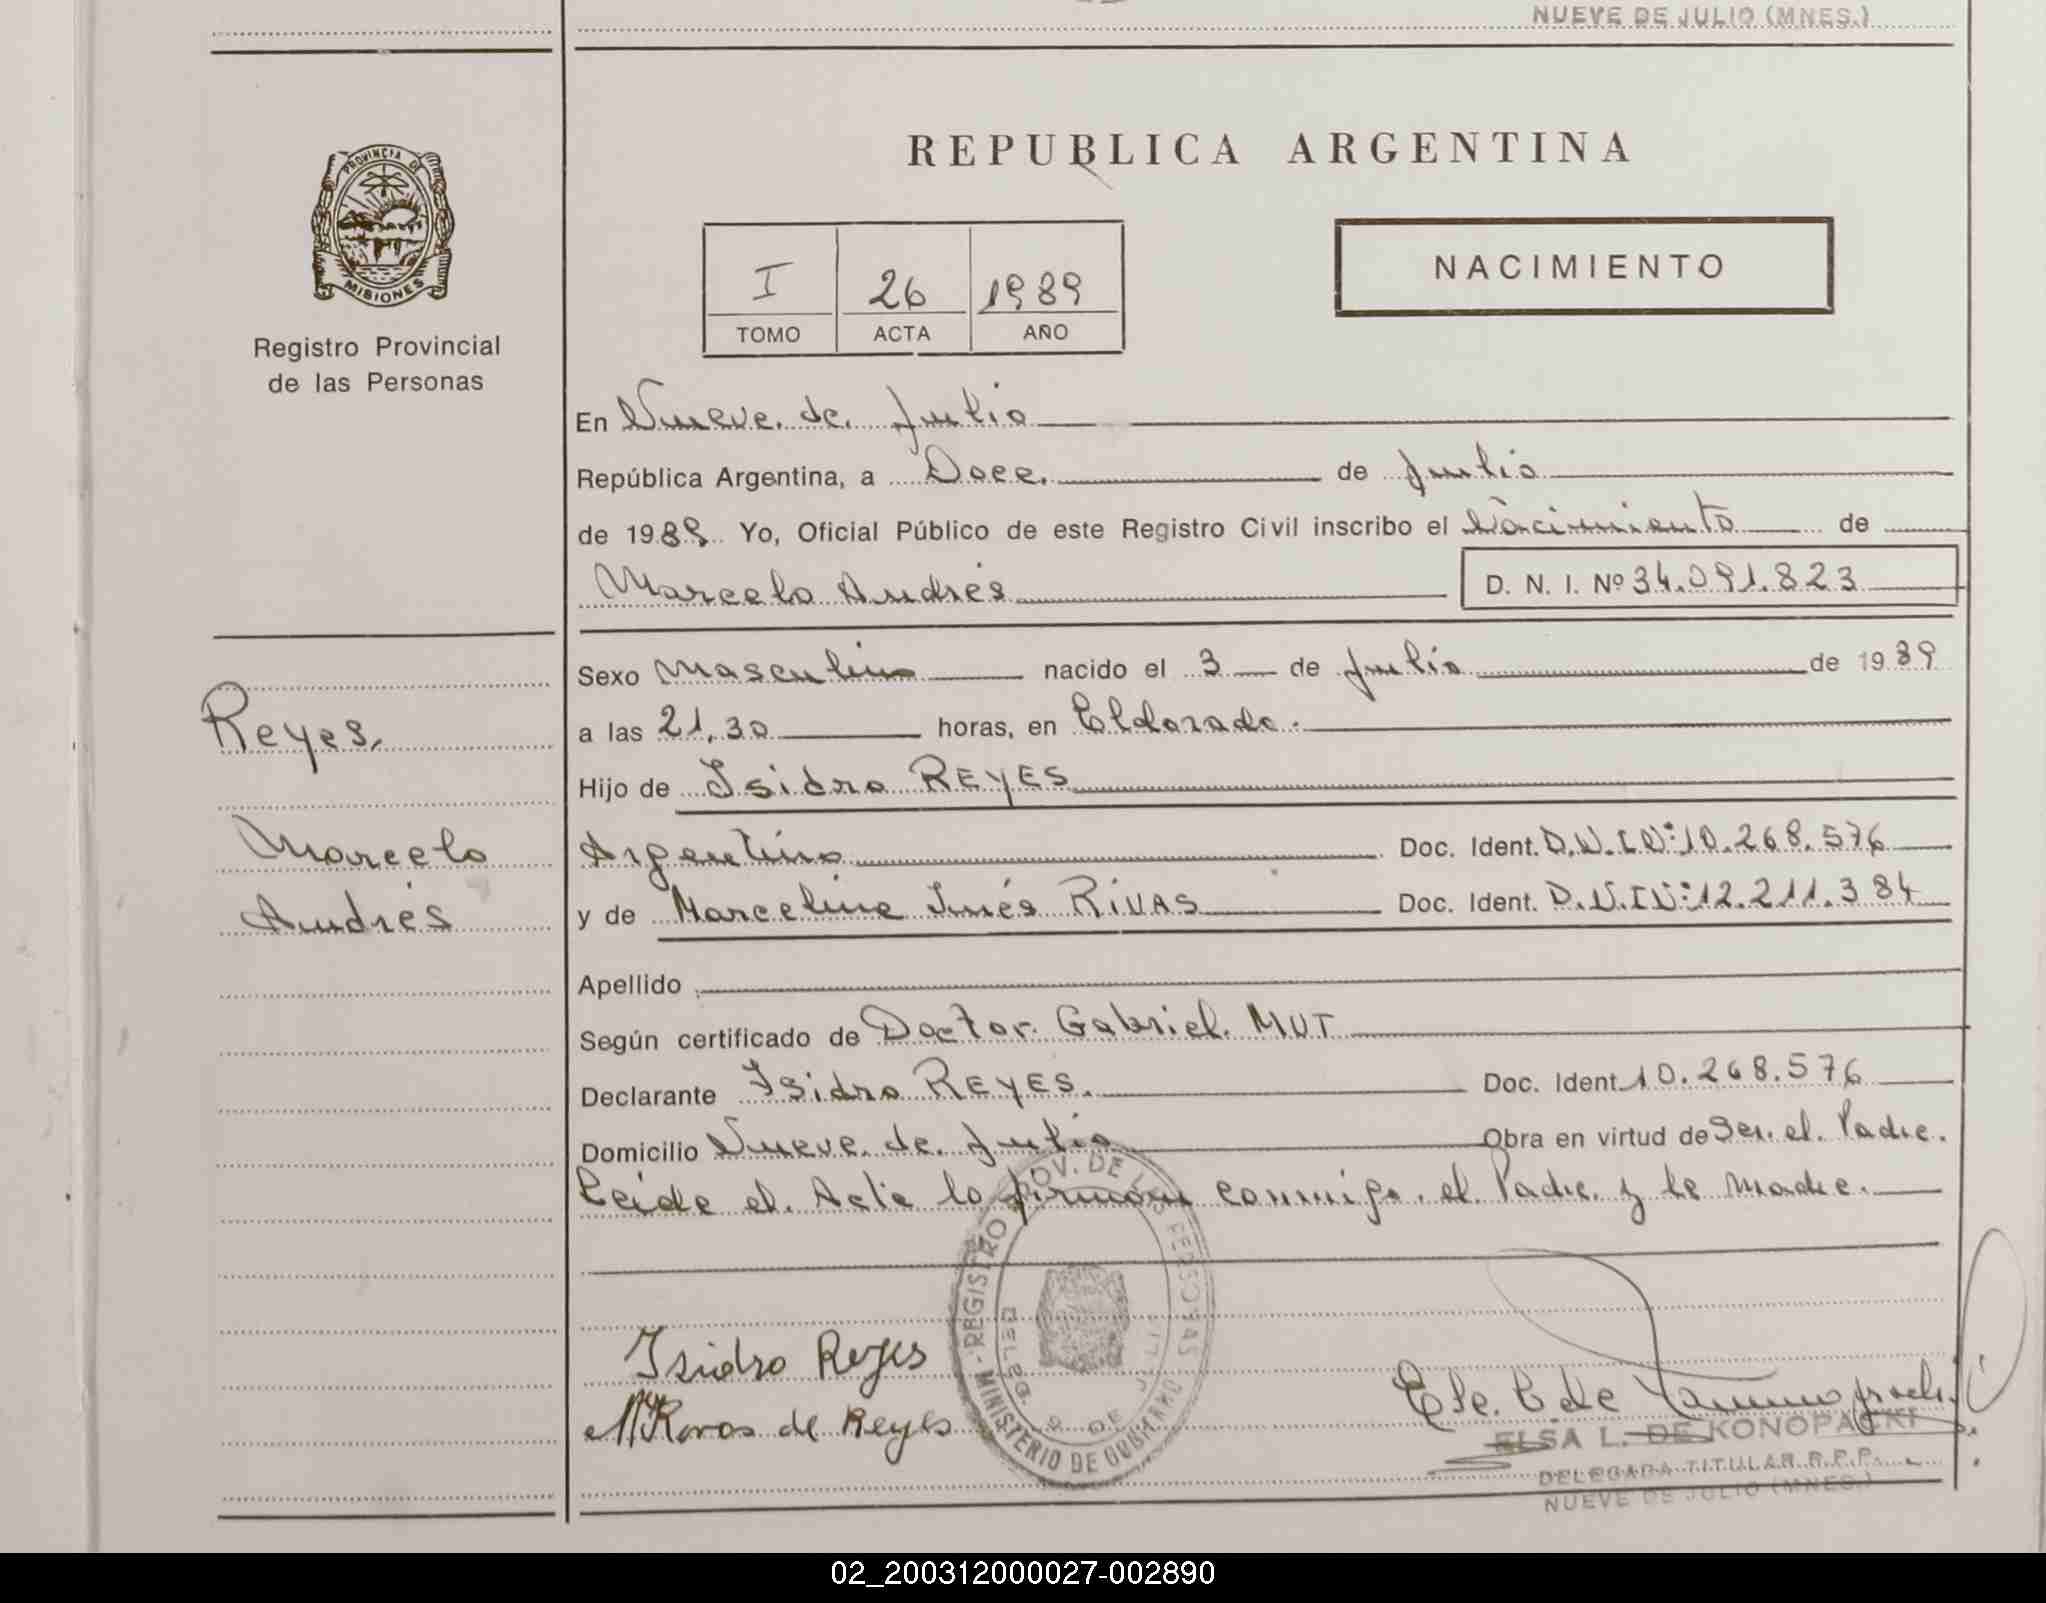 NUEVE DE JULIO (MNES.)
PROVINCIA DE
MISIONES
Registro Provincial
de las Personas
REPUBLICA ARGENTINA
NACIMIENTO
I 26 1989
TOMO ACTA AÑO
En Nueve de Julio
República Argentina, a Doce de Julio
de 1989 Yo, Oficial Público de este Registro Civil inscribo el Nacimiento de
Marcelo Andrés D. N. I. Nº 34.091.823
Sexo Masculino nacido el 3 de Julio de 1989
a las 21,30 horas, en Eldorado.
Hijo de Isidro REYES
Argentino Doc. Ident. D.N.I.N: 10.268.576
y de Marcelina Inés RIVAS Doc. Ident. D.N.I.N: 12.211.384
Apellido
Según certificado de Doctor Gabriel MUT
Declarante Isidro REYES. Doc. Ident. 10.268.576
Domicilio Nueve de Julio Obra en virtud de Ser el Padre.
Leida el Acta la firman conmigo el Padre y la Madre.
Reyes,
Marcelo
Andrés
REGISTRO PROV. DE LAS PERSONAS
MINISTERIO DE GOBIERNO
DELEG. 9 DE JULIO
Isidro Reyes
de Reyes
ELSA L. DE KONOPACKI
DELEGADA TITULAR R.P.P.
NUEVE DE JULIO (MNES.)
02_200312000027-002890